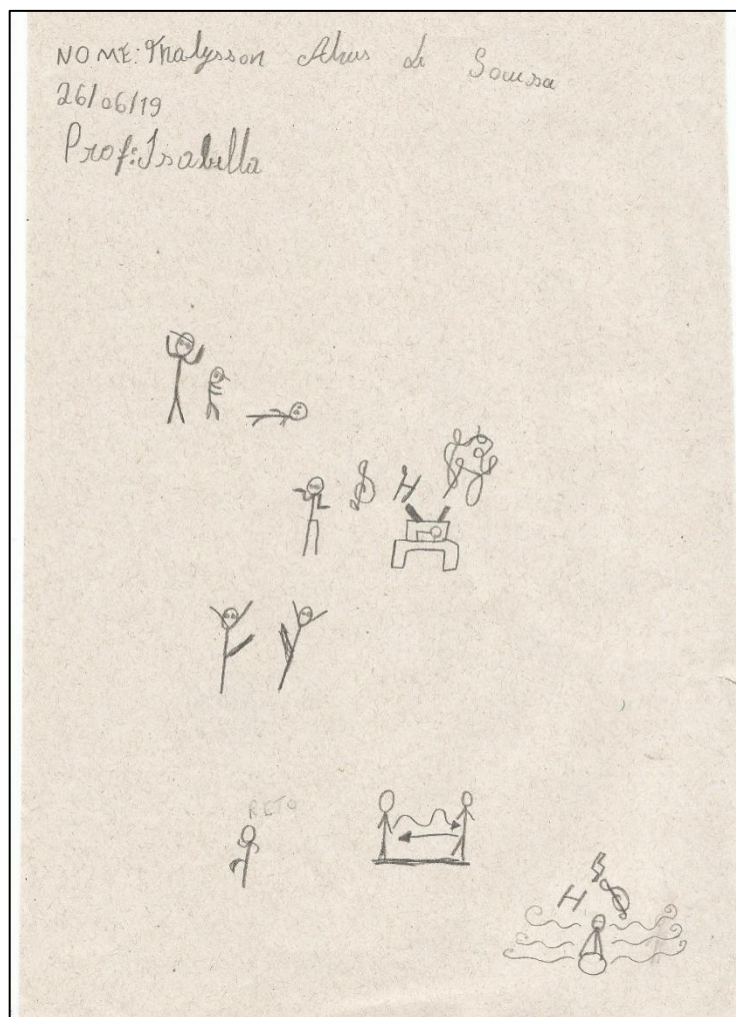 NOME: Thalysson Alves de Sousa
26/06/19
Prof: Isabella
RETO